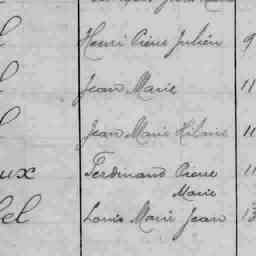 Henri Pierre Julien 9
Jean Marie 11
Jean Marie Hilaire 11
ux Ferdinand Pierre 11
Marie
el Louis Marie Jean 13